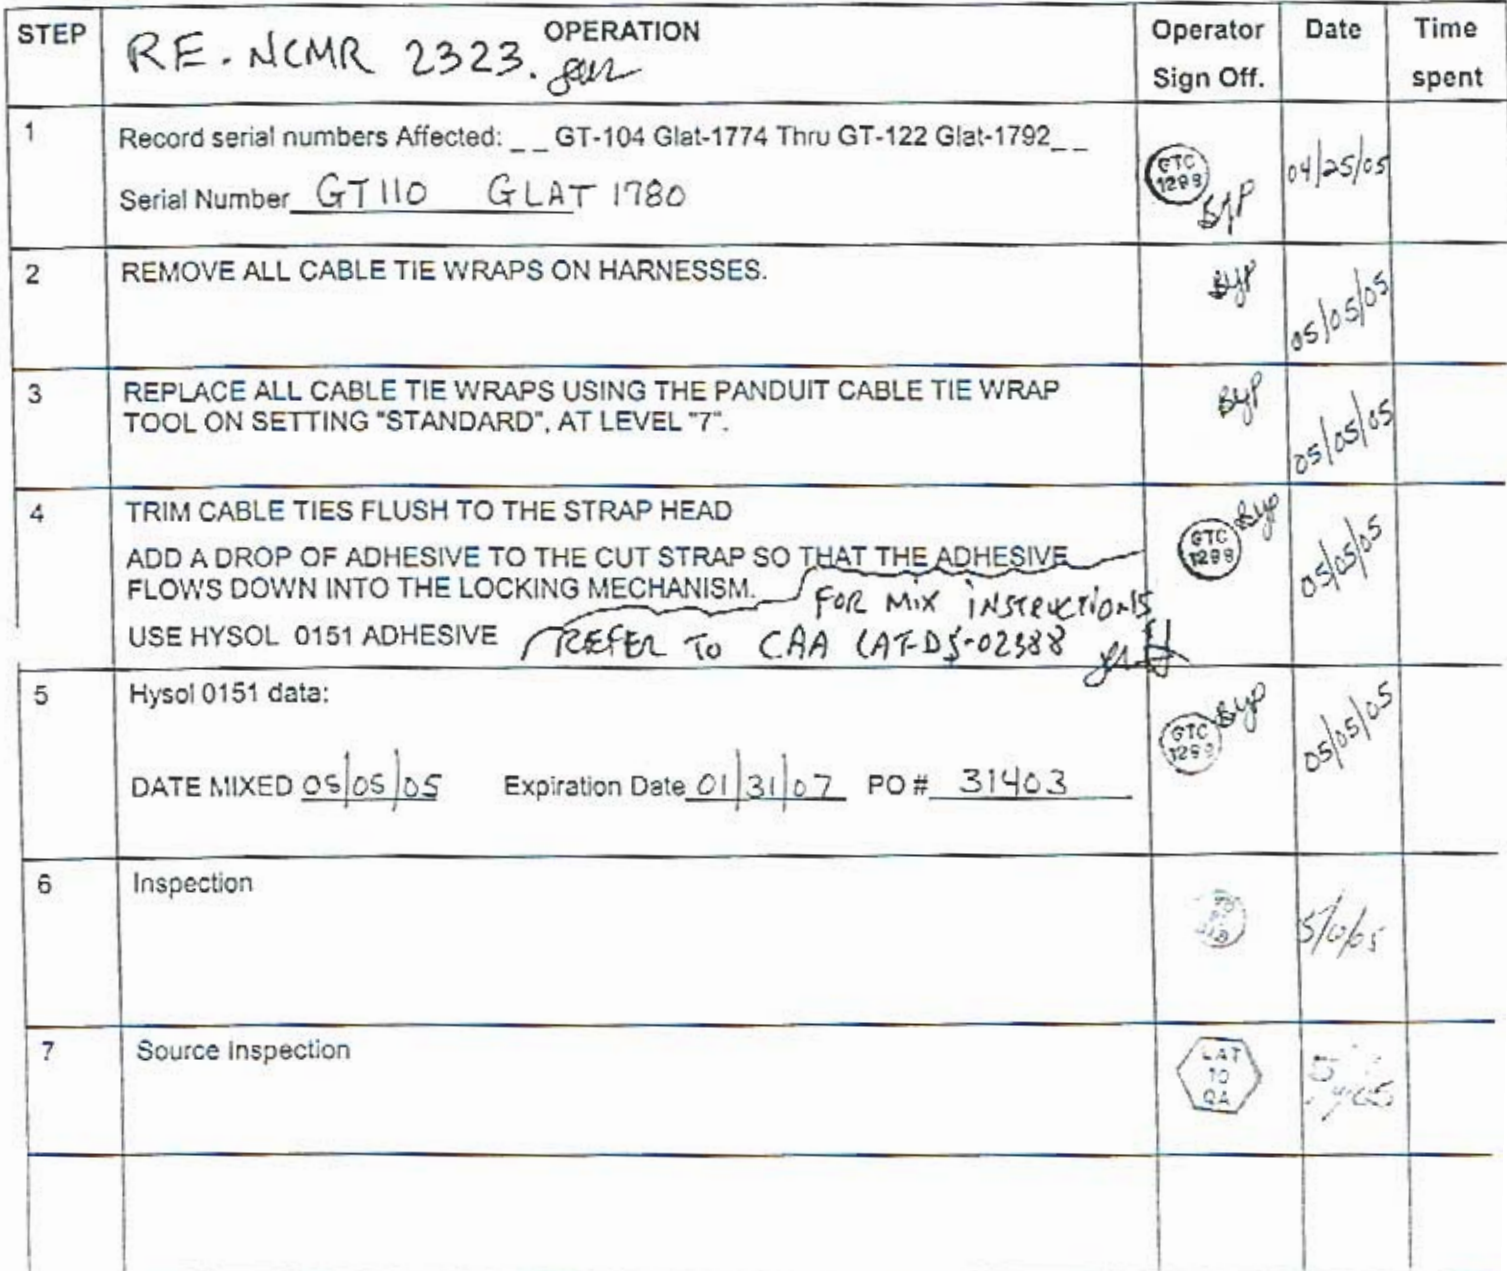 STEP OPERATION Operator Sign Off. Date Time spent
RE. NCMR 2323.
1 Record serial numbers Affected: _ _ GT-104 Glat-1774 Thru GT-122 Glat-1792_ _
Serial Number GT110 GLAT 1780
GTC 1298 BYP 04/25/05
2 REMOVE ALL CABLE TIE WRAPS ON HARNESSES. BYP 05/05/05
3 REPLACE ALL CABLE TIE WRAPS USING THE PANDUIT CABLE TIE WRAP
TOOL ON SETTING "STANDARD", AT LEVEL "7".
BYP 05/05/05
4 TRIM CABLE TIES FLUSH TO THE STRAP HEAD
ADD A DROP OF ADHESIVE TO THE CUT STRAP SO THAT THE ADHESIVE
FLOWS DOWN INTO THE LOCKING MECHANISM.
FOR MIX INSTRUCTIONS
USE HYSOL 0151 ADHESIVE REFER TO CAA LAT-DS-02388
GTC 1298 BYP 05/05/05
5 Hysol 0151 data:
DATE MIXED 05/05/05 Expiration Date 01/31/07 PO # 31403
GTC 1298 BYP 05/05/05
6 Inspection
7 Source Inspection
LAT 10 QA